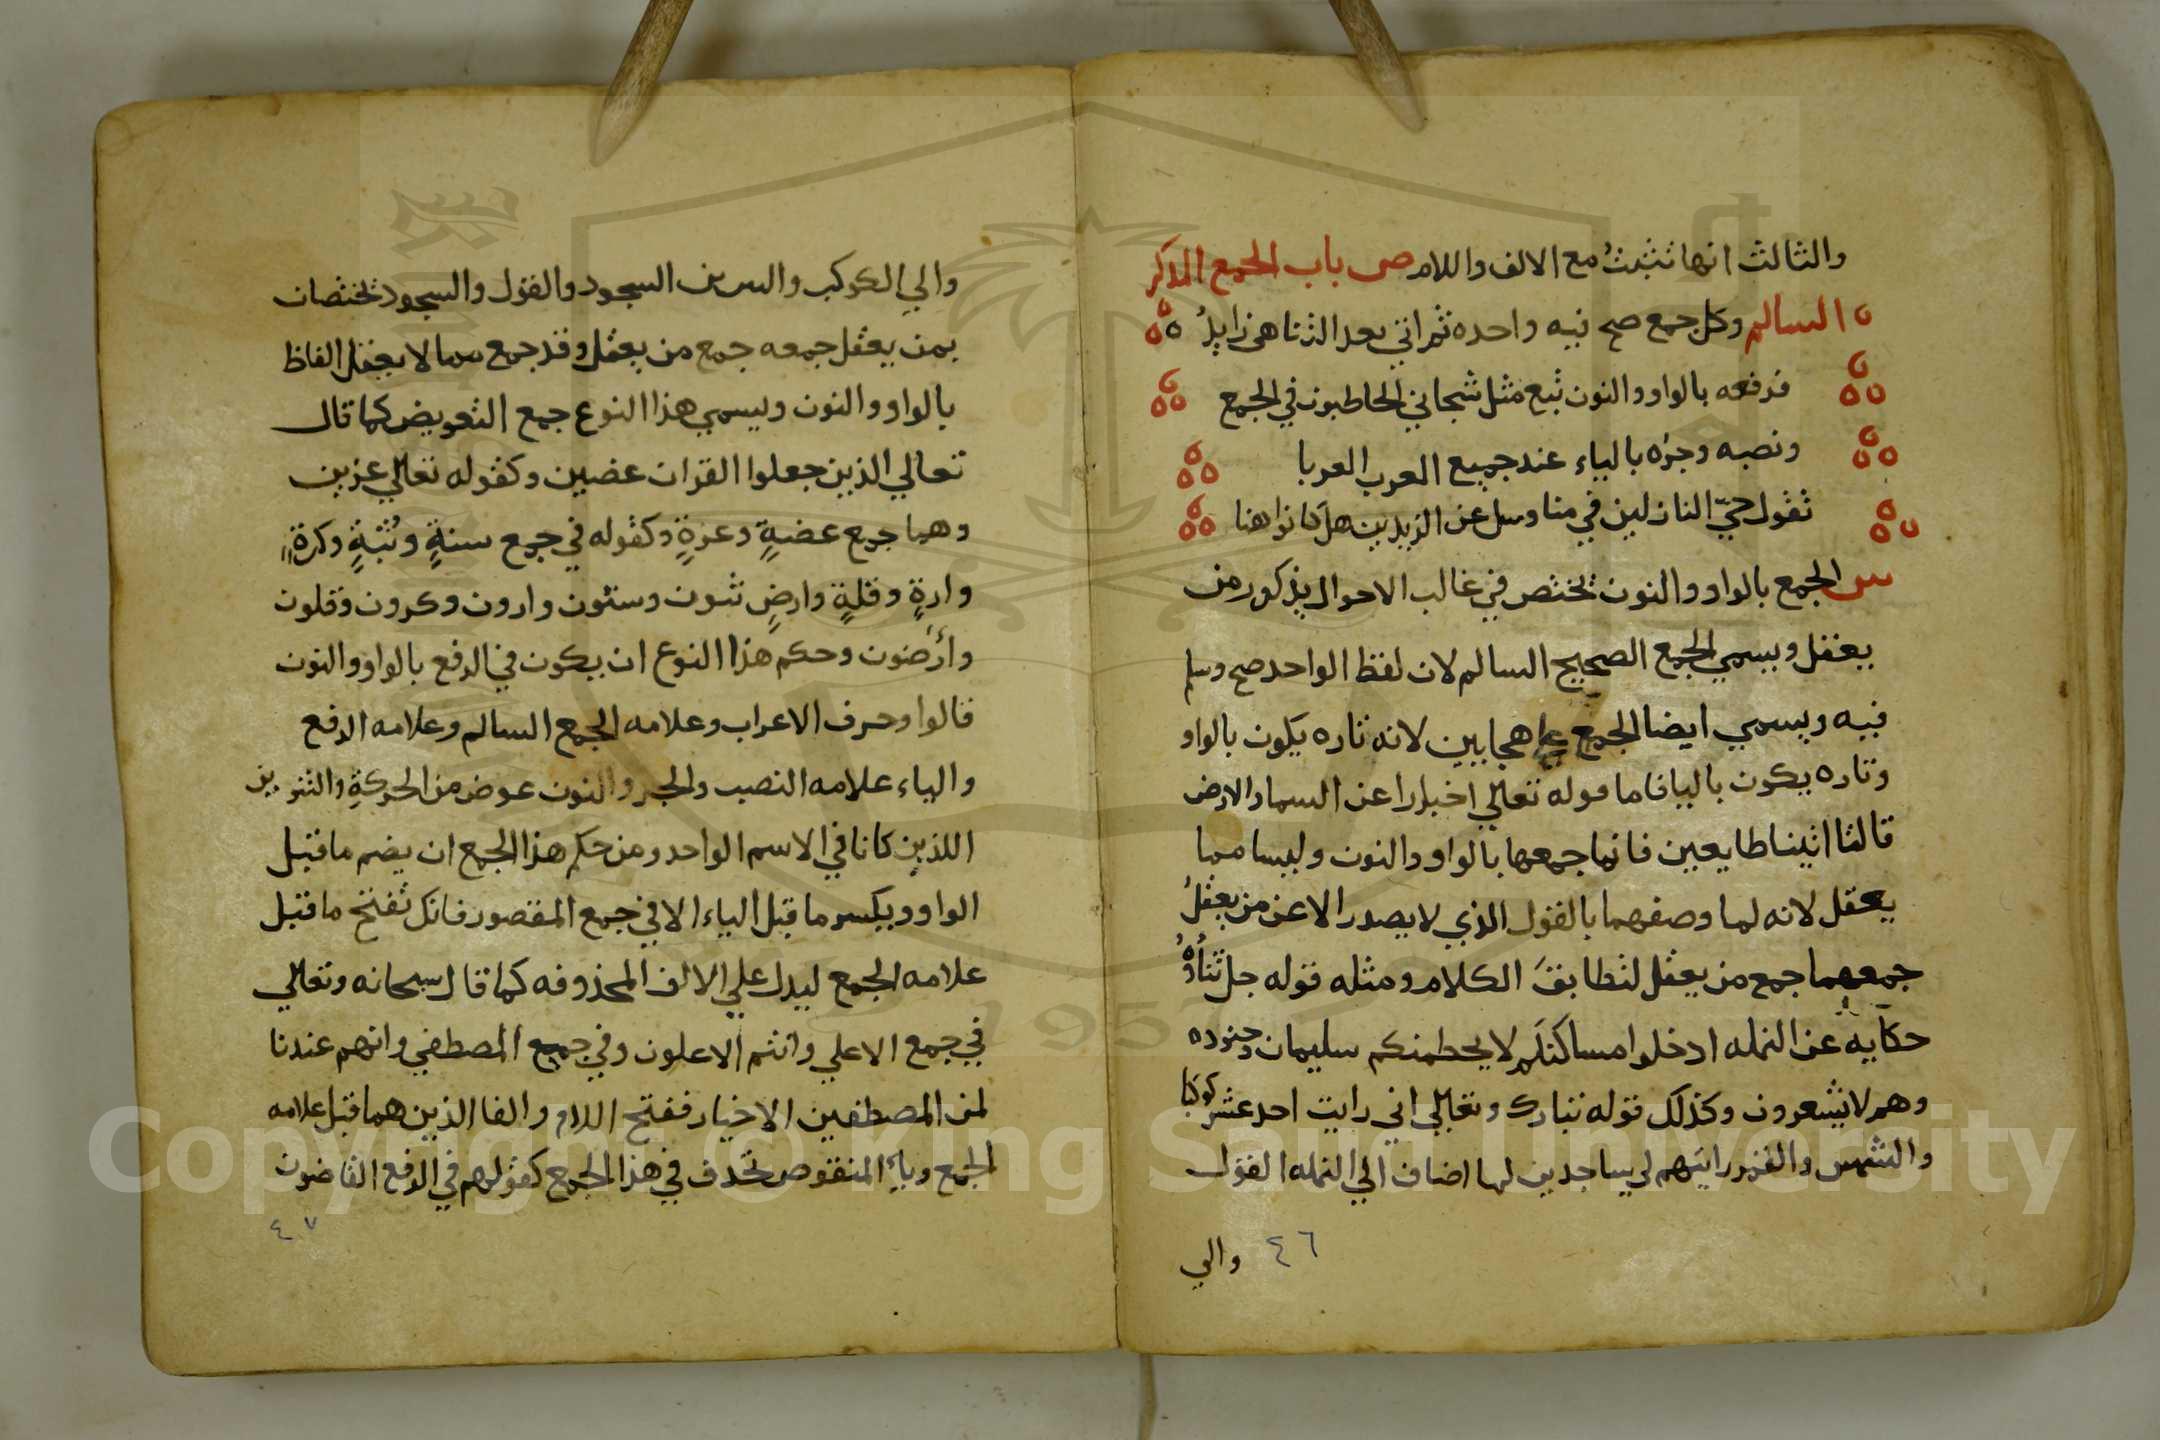 والثالث انها تثبت مع الالف واللام ص باب الجمع المذكر
السالم وكل جمع صح فيه واحده ثم اتي بعد التناهي زايدُ
فرفعه بالواو والنون تبع مثل شجاني الخاطبون في الجمع
ونصبه وجره بالياء عند جميع العرب العربا
تقول حيّ النازلين في منا وسل عن الزيدين هل كانوا هنا
س الجمع بالواو والنون تختص في غالب الاحوال بذكور من
يعقل ويسمي الجمع الصحيح السالم لان لفظ الواحد صح وسلم
فيه ويسمي ايضا الجمع علي هجايين لانه تاره يكون بالواو
وتاره يكون باليا فاما قوله تعالي اخبارا عن السما والارض
قالتا اتينا طايعين فانما جمعها بالواو والنون وليسا مما
يعقل لانه لما وصفهما بالقول الذي لا يصدر الا عن من يعقلُ
جمعهما جمع من يعقل لتطابقَ الكلام ومثله قوله جل ثناُؤهُ
حكايه عن النمله ادخلوا مساكنكم لا يحطمنكم سليمان وجنوده
وهم لا يشعرون وكذلك قوله تبارك وتعالي اني رايت احد عشر كوكبا
والشمس والقمر رايتهم لي ساجدين لما اضاف الي النمله القول
٤٦ والي
والي الكوكب والنيرين السجود والقول والسجود تختصان
بمن يعقل جمعه جمع من يعقل وقد جمع مما لا يعقل الفاظ
بالواو والنون ويسمي هذا النوع جمع التعويض كما قال
تعالي الذين جعلوا القران عضين وكقوله تعالي عزين
وهما جمع عضةٍ وعزةٍ وكقوله في جمع سنةٍ وثبةٍ وكرةٍ
وارةٍ وقلةٍ وارضٍ ثبون وسنون وارون وكرون وقلون
وأرَضون وحكم هذا النوع ان يكون في الرفع بالواو والنون
فالواو حرف الاعراب وعلامه الجمع السالم وعلامه الرفع
والياء علامه النصب والجر والنون عوض من الحركةِ والتنوين
اللذين كانا في الاسم الواحد ومن حكم هذا الجمع ان يضم ما قبل
الواو ويكسر ما قبل الياء الا في جمع المقصور فانك تفتح ما قبل
علامه الجمع ليدل علي الالف المحذوفه كما قال سبحانه وتعالي
في جمع الاعلي وانتم الاعلون وفي جميع المصطفي وانهم عندنا
لمن المصطفين الاخيار ففتح اللام والفا الذين هما قبل علامه
الجمع وياءِ المنقوص تحذف في هذا الجمع كقولهم في الرفع القاضون
٤٧
Copyright © King Saud University
1957